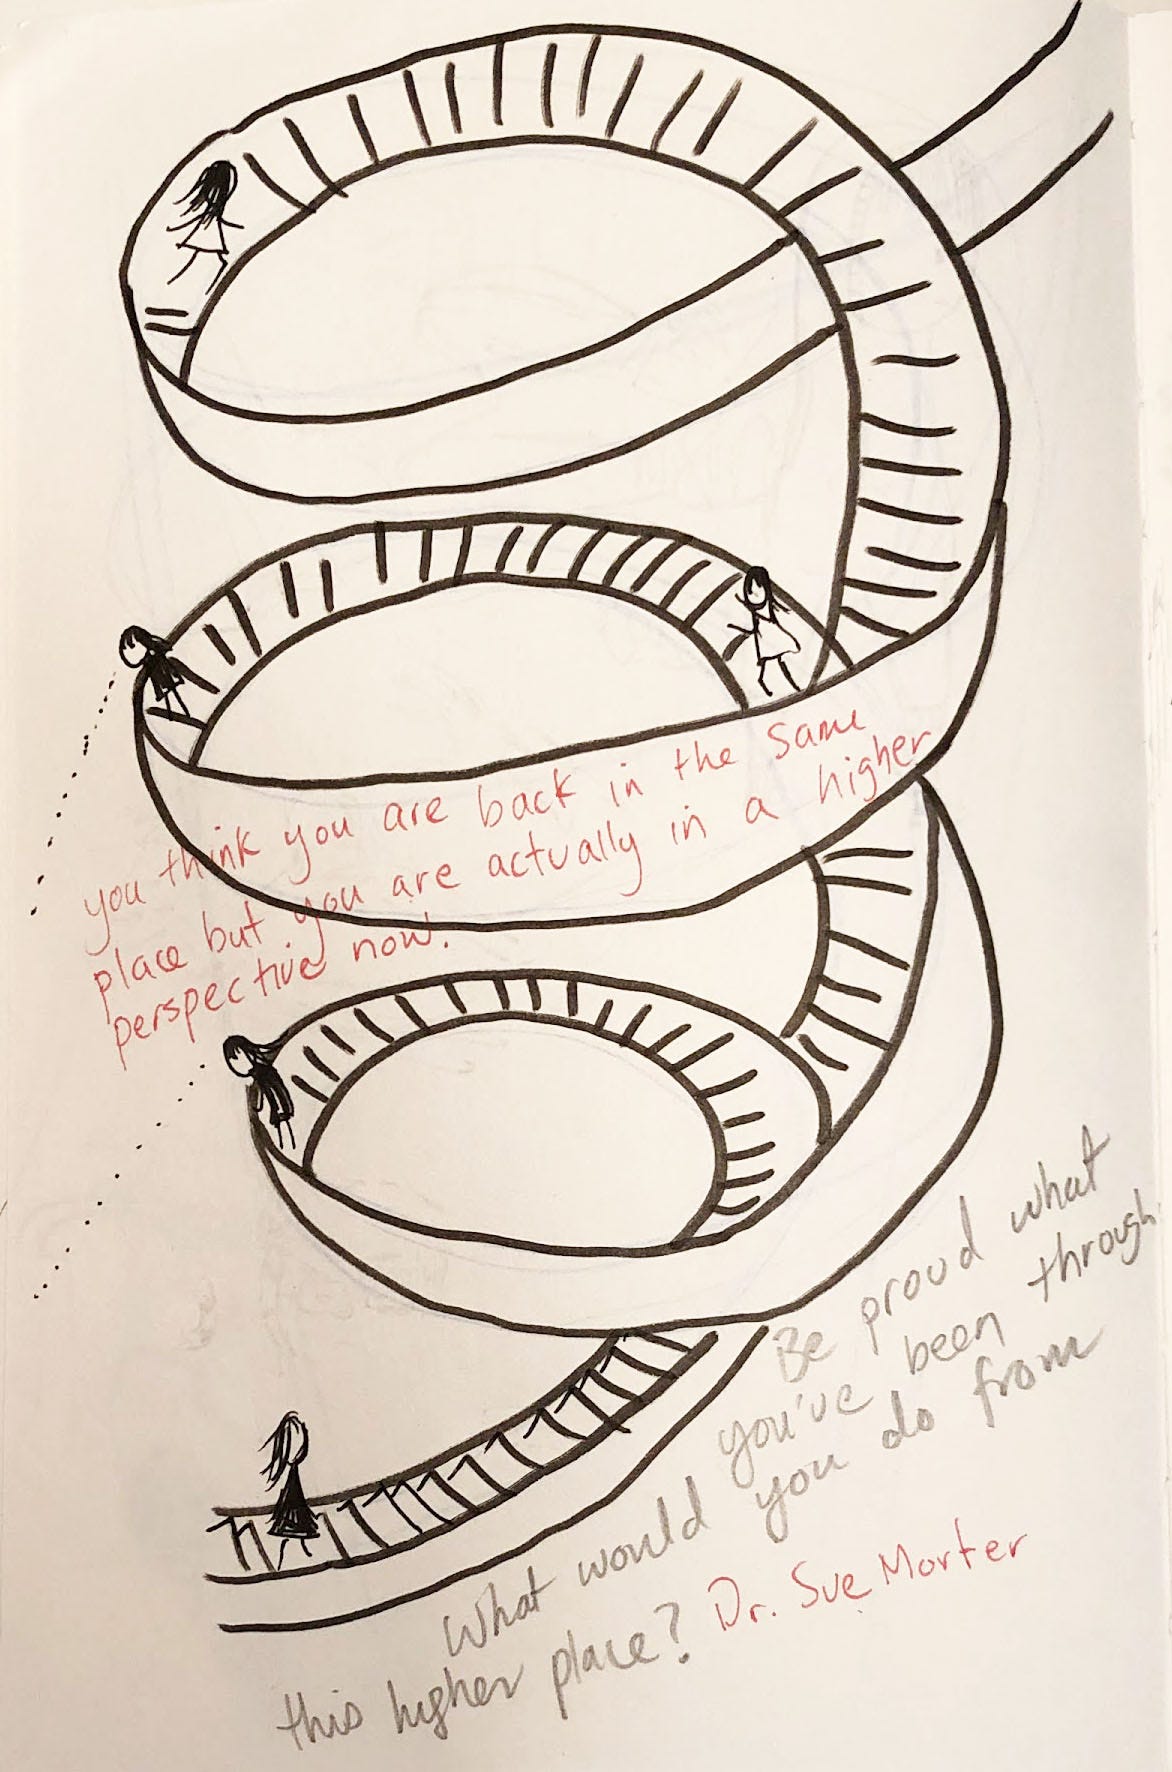 you think you are back in the same
place but you are actually in a higher
perspective now.
Be proud what
you've been through.
What would you do from
this higher place? Dr. Sue Morter